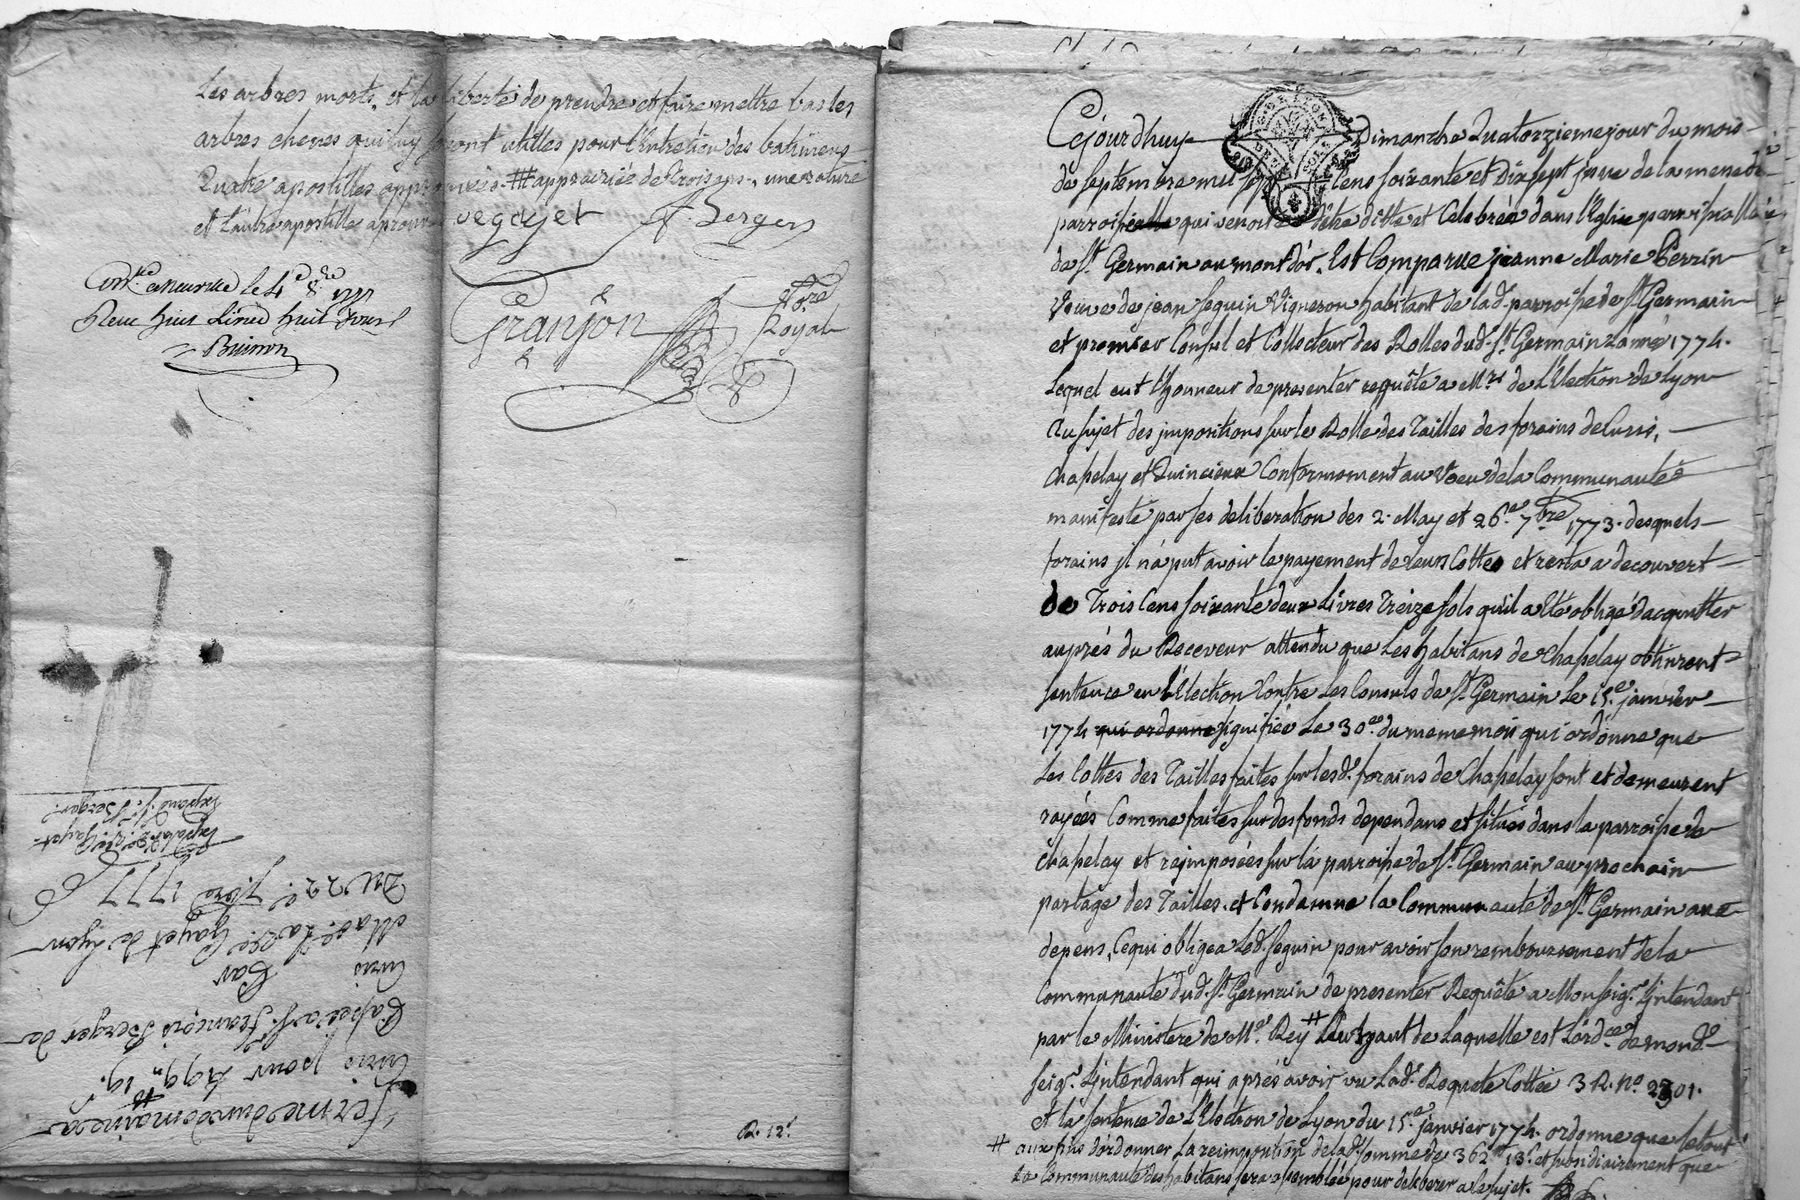 Les arbres morts, et la liberté de prendre et faire mettre bas les
arbres chenes qui luy seront utilles pour l'Entretien des batimens
Quatre apostilles approuvées. # appréciée de trois ans, une rature
et l'autre apostille aprouvé
vegayet F. Berger
Granjon No.re Royal
Con.lé a neuville le 4.e 8.bre 1777
Receu huit Livres huit sous
Buisson
Ferme d'un domaine a
Curis pour 499.ll 19.s
Passé a S.r François Berger de
Curis
Par
Mad.e La V.ve Gayet de Lyon
Du 22.e 7.bre 1777
Expédié à V.e Gayet
Expédié S.r Berger
R. 12.s
Cejourdhuy Dimanche Quatorzieme jour du mois
de septembre mil sept Cens soixante et Dix sept issue de la messe de
parroisse qui venoit d'être ditte et Celebrée dans l'Eglise parroissialle
de S.t Germain au mont d'or, Est Comparue jeanne Marie Perrin
Veuve de jean Seguin Vigneron habitant de lad. parroisse de S.t Germain
et premier Consul et Collecteur des Rolles dud. S.t Germain Lannée 1774.
Lequel eut l'honneur de presenter requête a M.rs de L'Election de Lyon
Au sujet des jmpositions sur le Rolle des Tailles des forains de Curis,
Chapelay et Quincieux Conformement au Voeu de la Communauté
manifesté par ses deliberation des 2. May et 26.e 7.bre 1773. desquels
forains jl n'a put avoir le payement de leurs Cottes et resta a decouvert
de Trois Cens soixante deux Livres Treize sols qu'il a Eté obligé dacquitter
auprés du Receveur attendu que Les habitans de Chapelay obtinrent
sentence en L'Election Contre Les Consuls de S.t Germain Le 15.e janvier
1774 qui ordonne signifiée Le 30.e du meme mois qui ordonne que
Les Cottes des Tailles faites sur lesd. forains de Chapelay sont et demeurent
rayées Comme faites sur des fonds dependans et situés dans la parroisse de
Chapelay et rejmposées sur la parroisse de S.t Germain au prochain
partage des Tailles. et Condamne la Communauté de S.t Germain aux
depens, Ce qui obligea Led. Seguin pour avoir son remboursement de la
Communauté dud. S.t Germain de presenter Requête a Monseig.r L'intendant
par le Ministere de M.e Rey # Leurgaut de Laquelle est L'ord.ce de mond.
seig.r L'intendant qui aprés avoir vu Lad. Requete Cottée 3 R. N.o 2301.
et la sentence de L'Election de Lyon du 15.e janvier 1774. ordonne que le tout
# aux fins d'ordonner La reimposition de lad. somme de 362.ll 13.s et subsidiairement que
La Communauté des habitans sera assemblée pour deliberer a ce sujet.